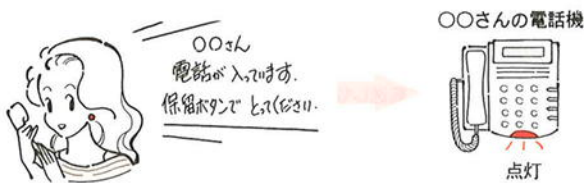 〇〇さん
電話が入っています.
保留ボタンでとってください.
〇〇さんの電話機
点灯